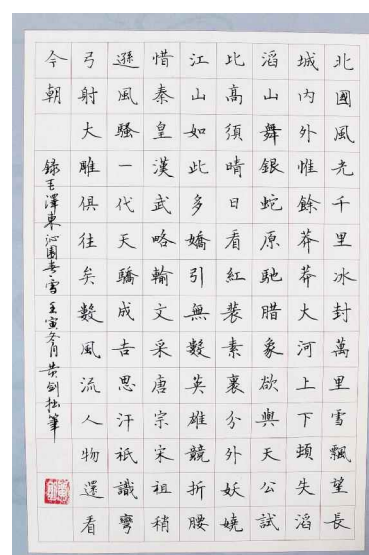 北國風光千里冰封萬里雪飄望長
城內外惟餘莽莽大河上下頓失滔
滔山舞銀蛇原馳腊象欲與天公試
比高須晴日看紅裝素裹分外妖嬈
江山如此多嬌引無數英雄競折腰
惜秦皇漢武略輸文采唐宗宋祖稍
遜風騷一代天驕成吉思汗祇識彎
弓射大雕俱往矣數風流人物還看
今朝
錄毛澤東沁園春雪壬寅冬月黄劍拙筆